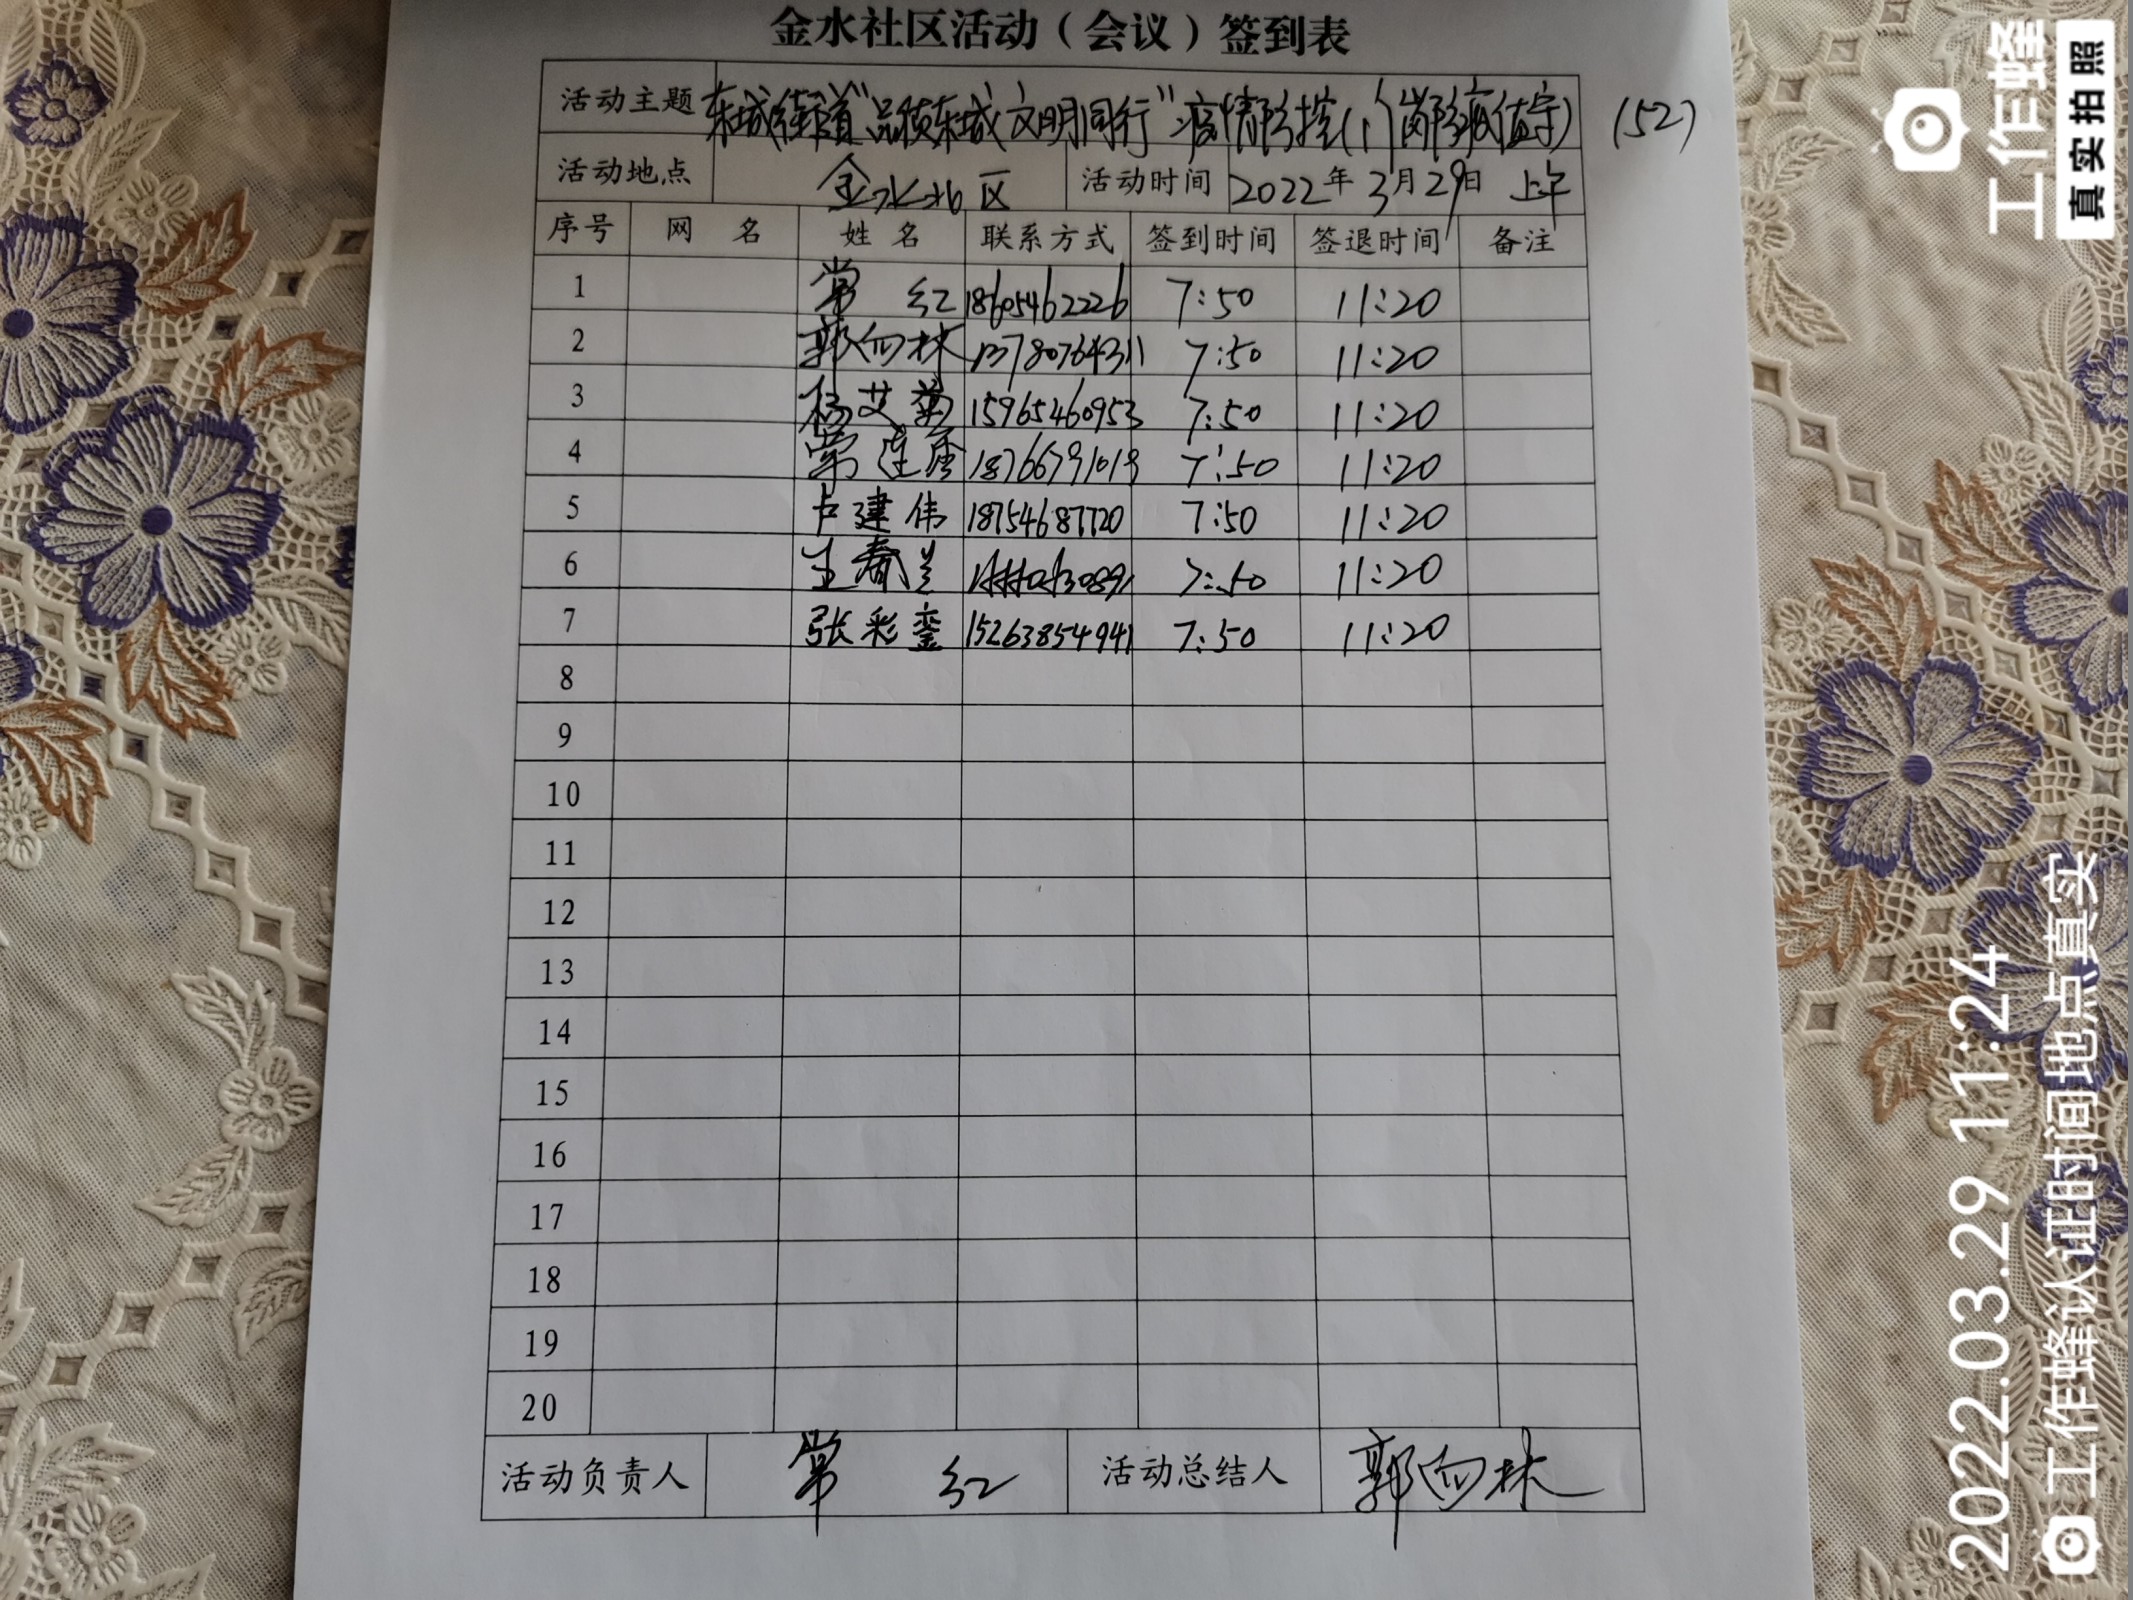 金水社区活动（会议）签到表
活动主题 东城街道"品质东城 文明同行"疫情防控(门岗防疫值守) (52)
活动地点 金水北区 活动时间 2022年3月29日 上午
序号 网 名 姓 名 联系方式 签到时间 签退时间 备注
1 常 红 18605462226 7:50 11:20
2 郭向林 13780764311 7:50 11:20
3 杨艾菊 15965460953 7:50 11:20
4 常连奎 18766791019 7:50 11:20
5 卢建伟 18754687720 7:50 11:20
6 王春兰 7:50 11:20
7 张彩銮 15263854941 7:50 11:20
8
9
10
11
12
13
14
15
16
17
18
19
20
活动负责人 常 红 活动总结人 郭向林
工作蜂
真实拍照
2022.03.29 11:24
工作蜂认证时间地点真实